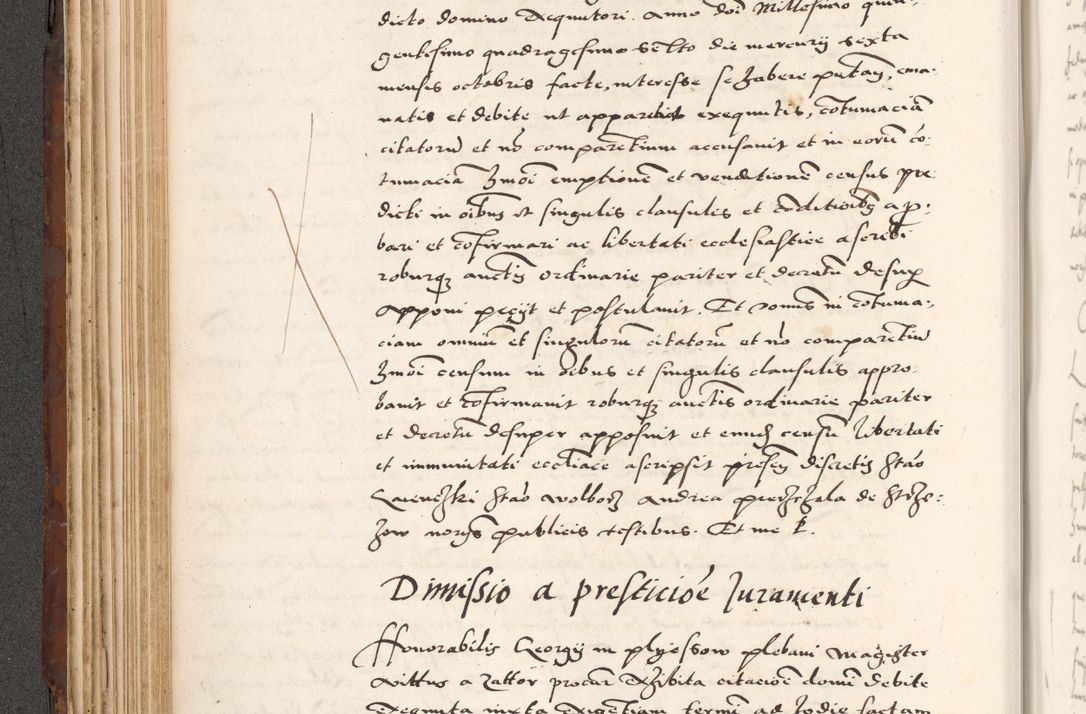 dicto domino Acquitori. Anno doi Millesimo quin-
gentesimo quadragesimo sexto die mercurij sexta
mensis octobris facte, interesse se habere putan, ema-
natis et debite ut apparebat exequutis, cotumaciã
citatorũ et nõ comparẽtium accusavit et in eorũ cõ-
tumaciã hmõi emptionẽ et venditionẽ census pre-
dicti in oibus et singulis clausulis et cõditioibus apro-
bari et cõfirmari ac libertati ecclesiastice ascribi
roburq auctis ordinarie pariter et decretũ desup
apponi petijt et postulavit. Et domus in cõtuma-
ciam omniũ et singulorũ citatorũ et nõ comparẽtiũ
hmõi censum in oibus et singulis clausulis appro-
bavit et cõfirmavit roburq auctis ordinarie pariter
et decretũ desuper apposuit et eundẽ censũ libertati
et immunitati eccliace ascripsit presen discretis
Andrea de
notis publicis testibus. Et me
Dimissio a presticioẽ Juramenti
Honorabilis Georgij in plyessow plebani Magister
Vittus a Zattor procur Exhibita citacioẽ domi debite
exequuta iuxta exigentiam termi ad hodie factam